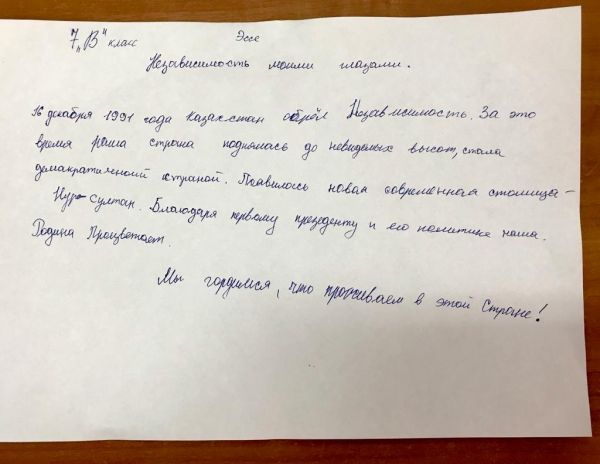 7 „В" класс Эссе
Независимость моими глазами.
16 декабря 1991 года Казахстан обрёл Независимость. За это
время наша страна поднялась до невиденых высот, стала
демакратичной страной. Появилось новая современная столица –
Нур-Султан. Благодаря первому президенту и его политике наша.
Родина Процветает.
Мы гордимся, что проживаем в этой Стране!